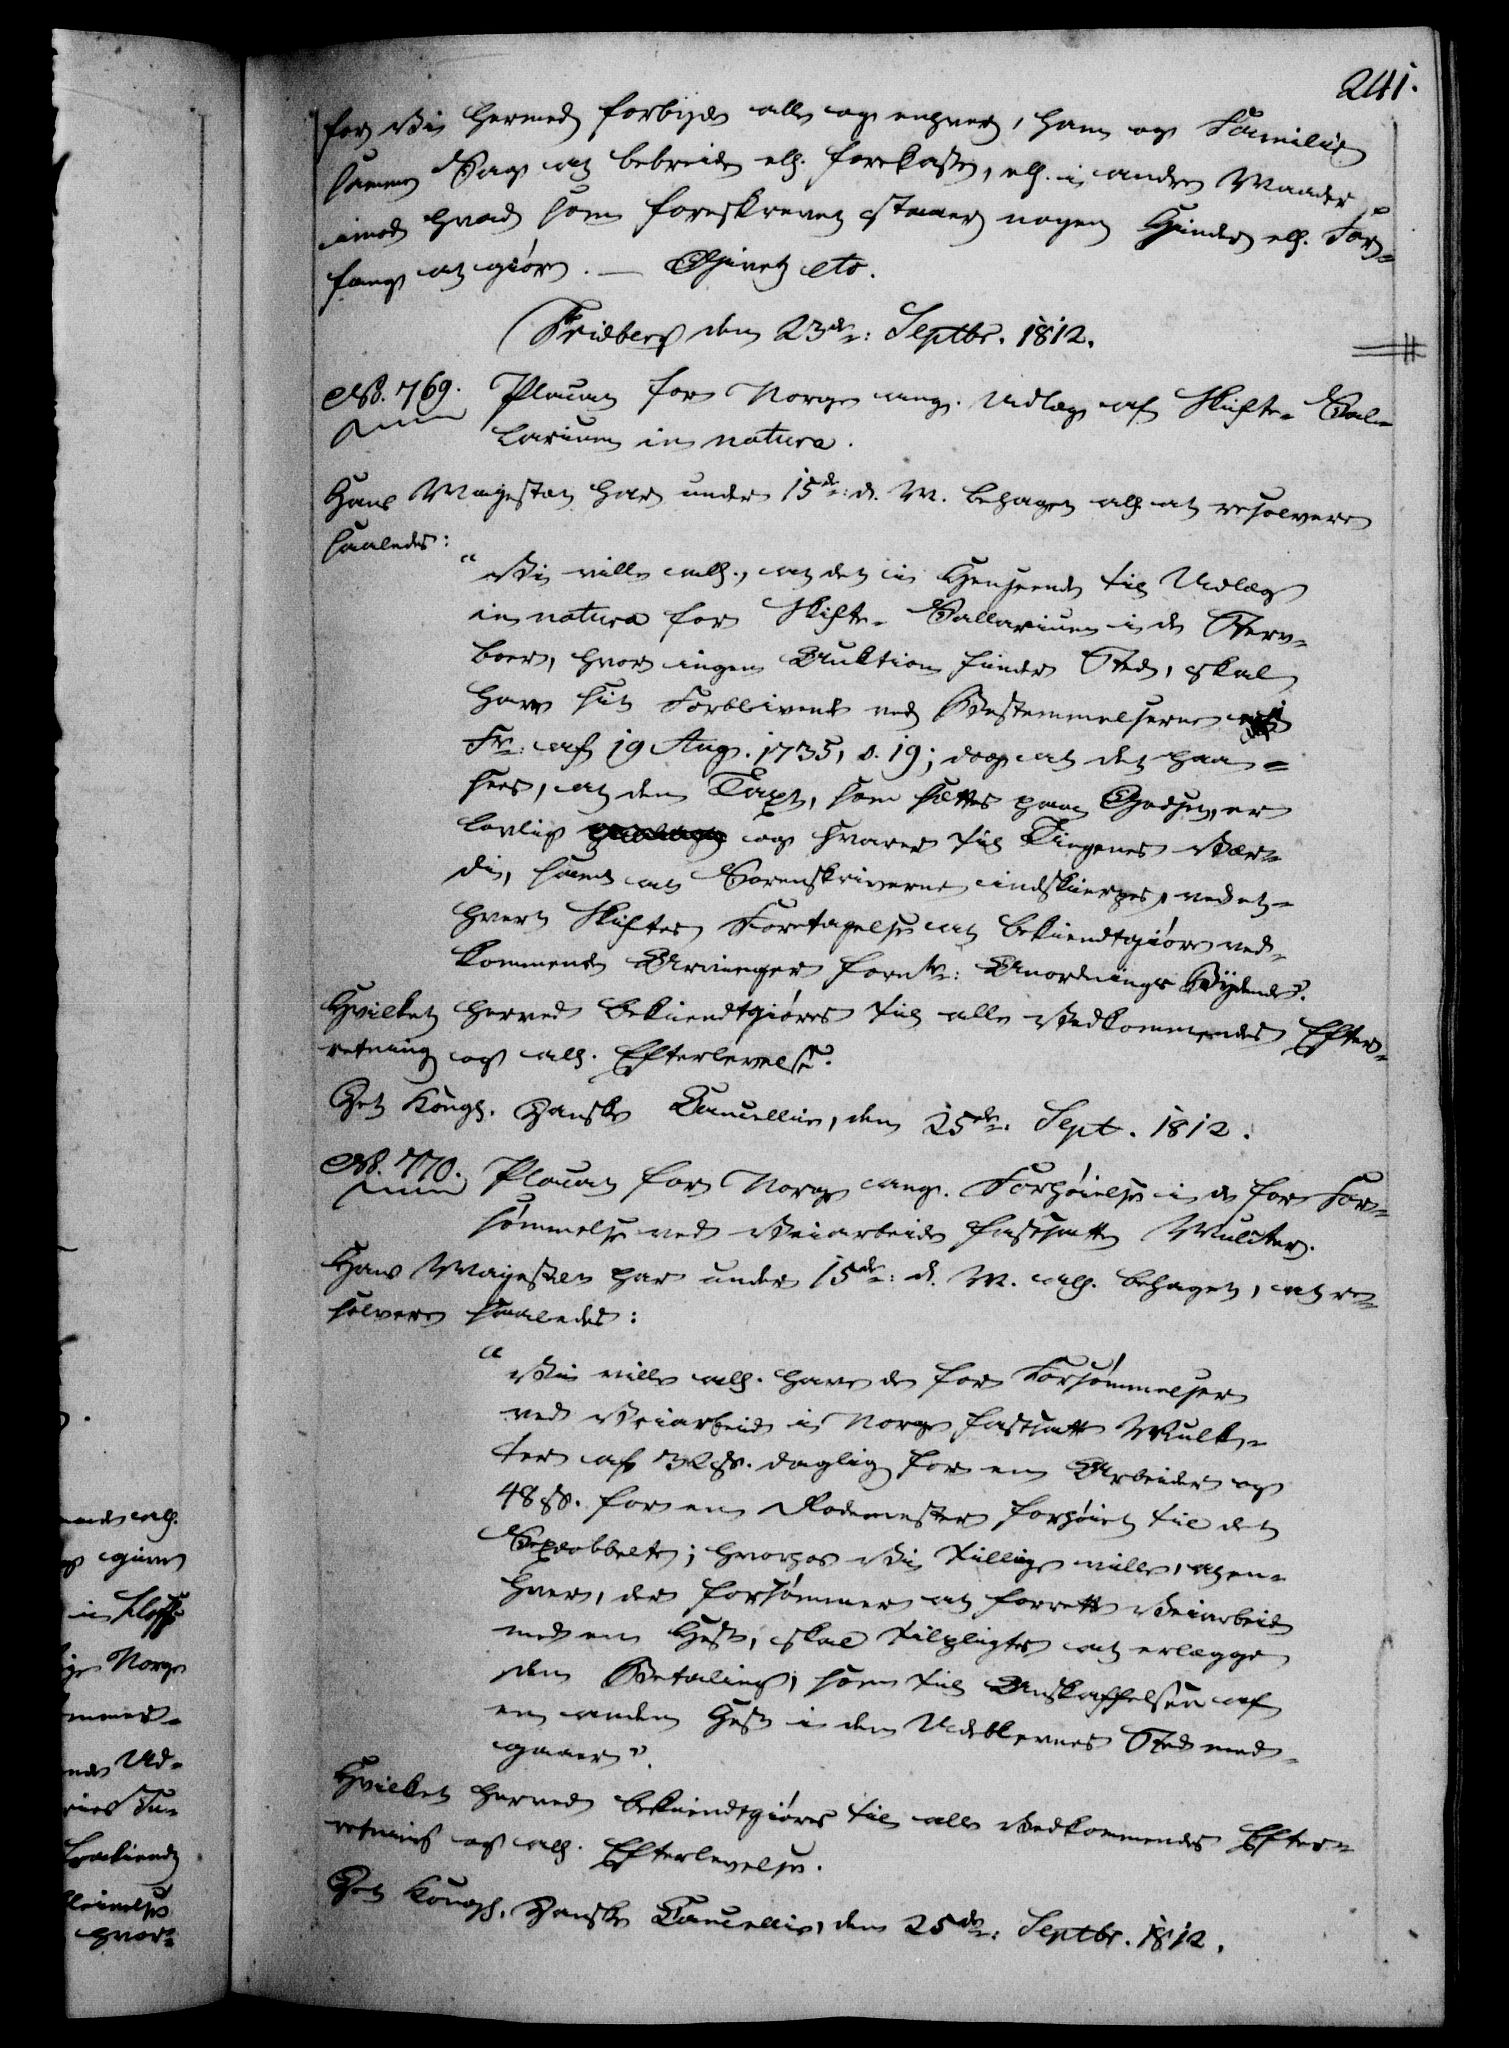 241.
for Vi hermed forbyde alle og enhver, ham og Familie
samme Sag at bebreide ell. forekaste, ell. i andre Maader
imod hvad som foreskrevet staaer nogen Hinder ell. For-
fang at giøre. — Givet etc.
Fridberg den 23de: Septbr. 1812.
No. 769. Placat for Norge ang. Udlæg af Skifte-Sal-
larium in natura.
Hans Majestæt har under 15de: d. M. behaget all. at resolvere
saaledes:
"Vi ville all., at det i Henseende til Udlæg
in natura for Skifte-Sallarium i de Sterv-
boer, hvor ingen Auktion finder Sted, skal
have sit Forblivende ved Bestemmelserne i
Fr: af 19 Aug. 1735, s. 19; dog at det paa-
sees, at den Taxt, som sættes paa Godset, er
lovlig og svarer til Tingenes Vær-
di, samt at Sorenskriverne indskierpes, ved et-
hvert Skiftes Foretagelse at bekiendtgiøre ved-
kommende Arvinger forntr: Anordnings Bydende".
Hvilket herved bekiendtgiøres til alle Vedkommendes Efter-
retning og all. Efterlevelse.
Det Kongl. Danske Cancellie, den 25de: Sept. 1812.
No. 770. Placat for Norge ang. Forhøielse i de for For-
sømmelse ved Veiarbeide fastsatte Mulcter.
Hans Majestæt har under 15de: d. M. all. behaget, at re-
solvere saaledes:
"Vi ville all. have de for Forsømmelser
ved Veiarbeide i Norge fastsatte Mulk-
ter af 32 ß. daglig for en Arbeider og
48 ß. for en Rodemester forhøiet til det
Sexdobbelte; hvorhos Vi tillige ville, at en-
hver, der forsømmer at forrette Veiarbeide
med en Hest, skal tilpligtes at erlægge
den Betaling, som til Anskaffelsen af
en anden Hest i den Udeblevnes Sted med-
gaaer".
Hvilket herved bekiendtgiøres til alle Vedkommendes Efter-
retning og all. Efterlevelse.
Det Kongl. Danske Cancellie, den 25de: Septbr. 1812.